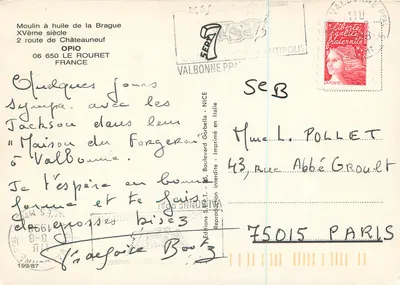 Moulin à huile de la Brague
XVème siècle
2 route de Châteauneuf
OPIO
06 650 LE ROURET
FRANCE
Quelques jours
sympa. avec les
Jackson dans leur
"Maison du Forgeron"
à Valbonne.
Je t'espère en bonne
forme et te fais
de grosses bises
Françoise
199/87
VALBONNE
7
Boulevard Gorbella - NICE
Reproduction interdite - Imprimé en Italie
SCB
Mme L. POLLET
43, RUE Abbé GROULT
75015 PARIS
LIBERTÉ
ÉGALITÉ
FRATERNITÉ
LA POSTE
1998